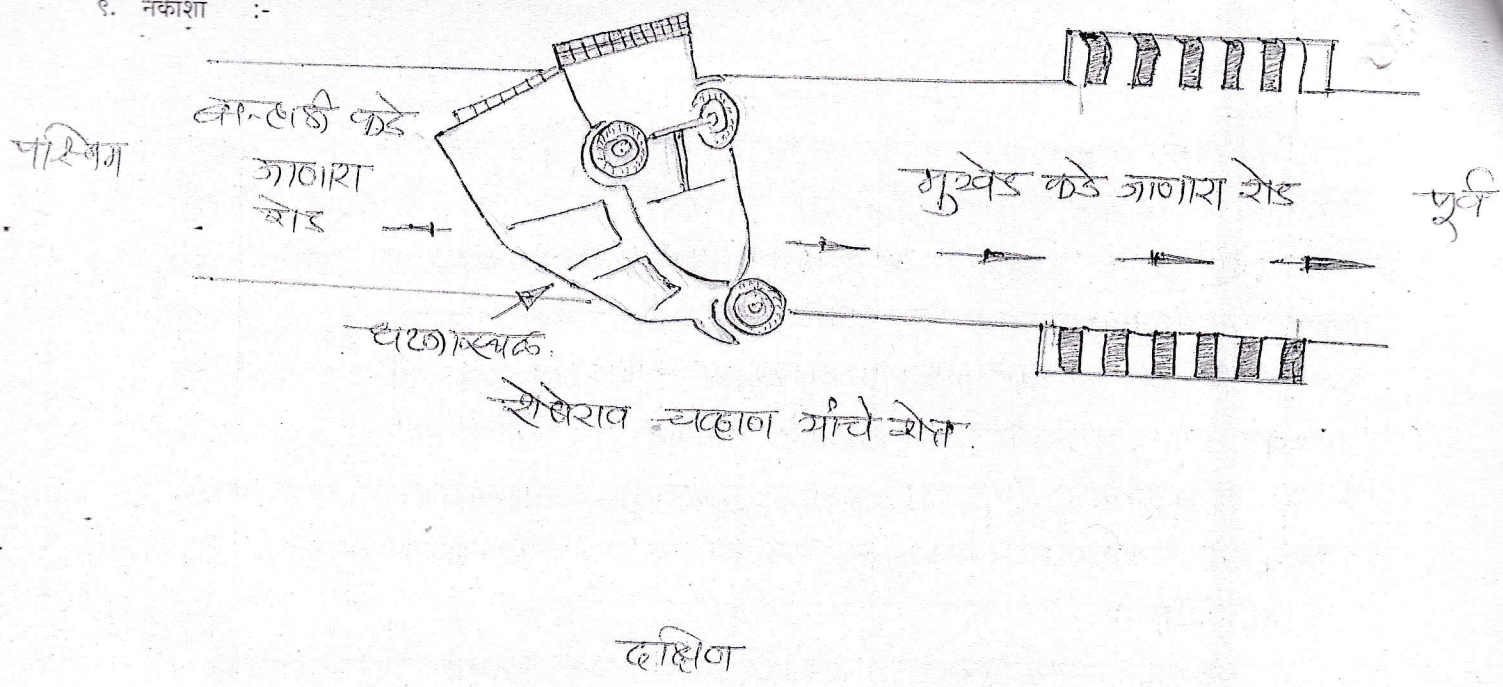 ९. नकाशा :-
पश्चिम
बाऱ्हाळी कडे
जाणारा
रोड
मुखेड कडे जाणारा रोड
पूर्व
घटनास्थळ.
शेषेराव चव्हाण यांचे शेत.
दक्षिण